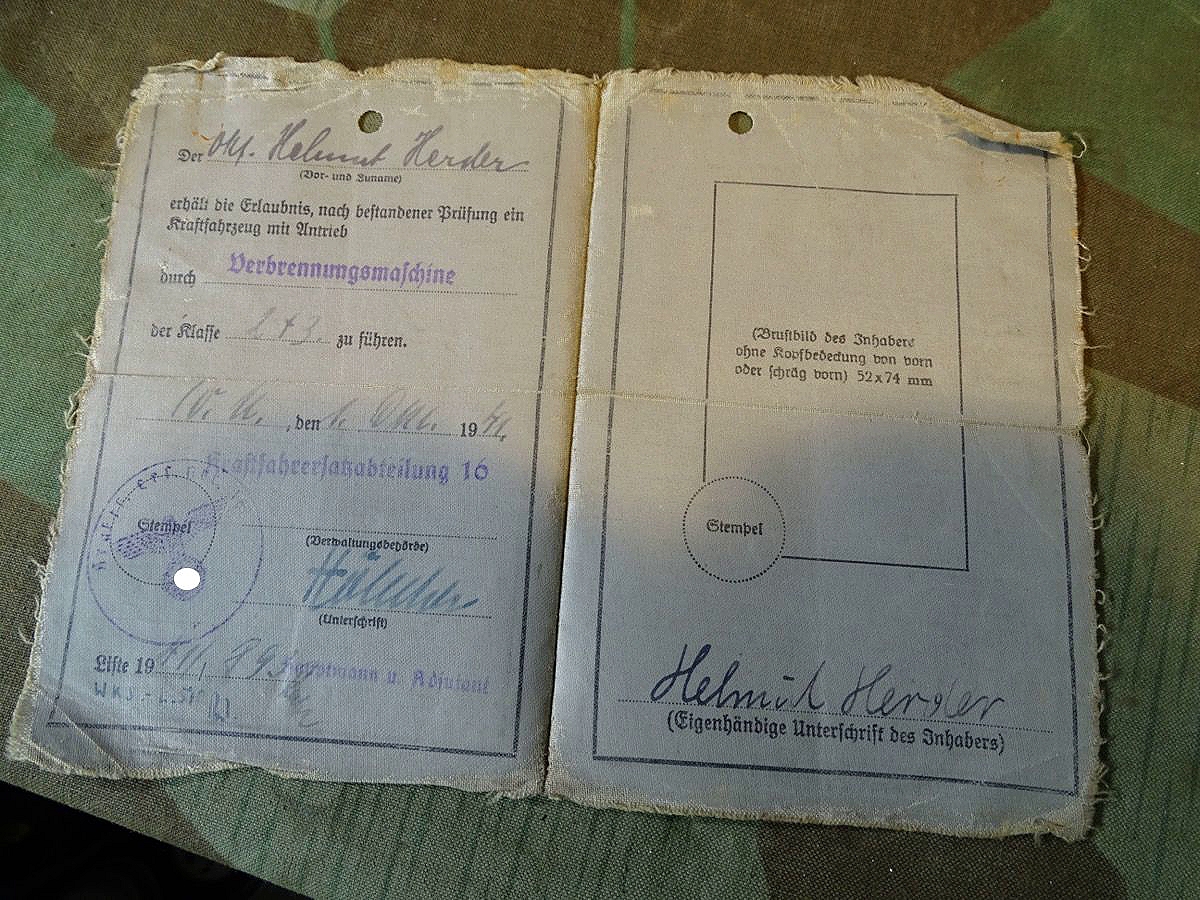 Der Okf. Helmut Herder
(Vor- und Zuname)
erhält die Erlaubnis, nach bestandener Prüfung ein
Kraftfahrzeug mit Antrieb
durch Verbrennungsmaschine
der Klasse 2+3. zu führen.
, den 1. Okt. 1941,
Kraftfahrersatzabteilung 16
Stempel
(Verwaltungsbehörde)
(Unterschrift)
Liste 19
Hauptmann u. Adjutant
(Brustbild des Inhabers
ohne Kopfbedeckung von vorn
oder schräg vorn) 52x74 mm
Stempel
Helmut Herder
(Eigenhändige Unterschrift des Inhabers)